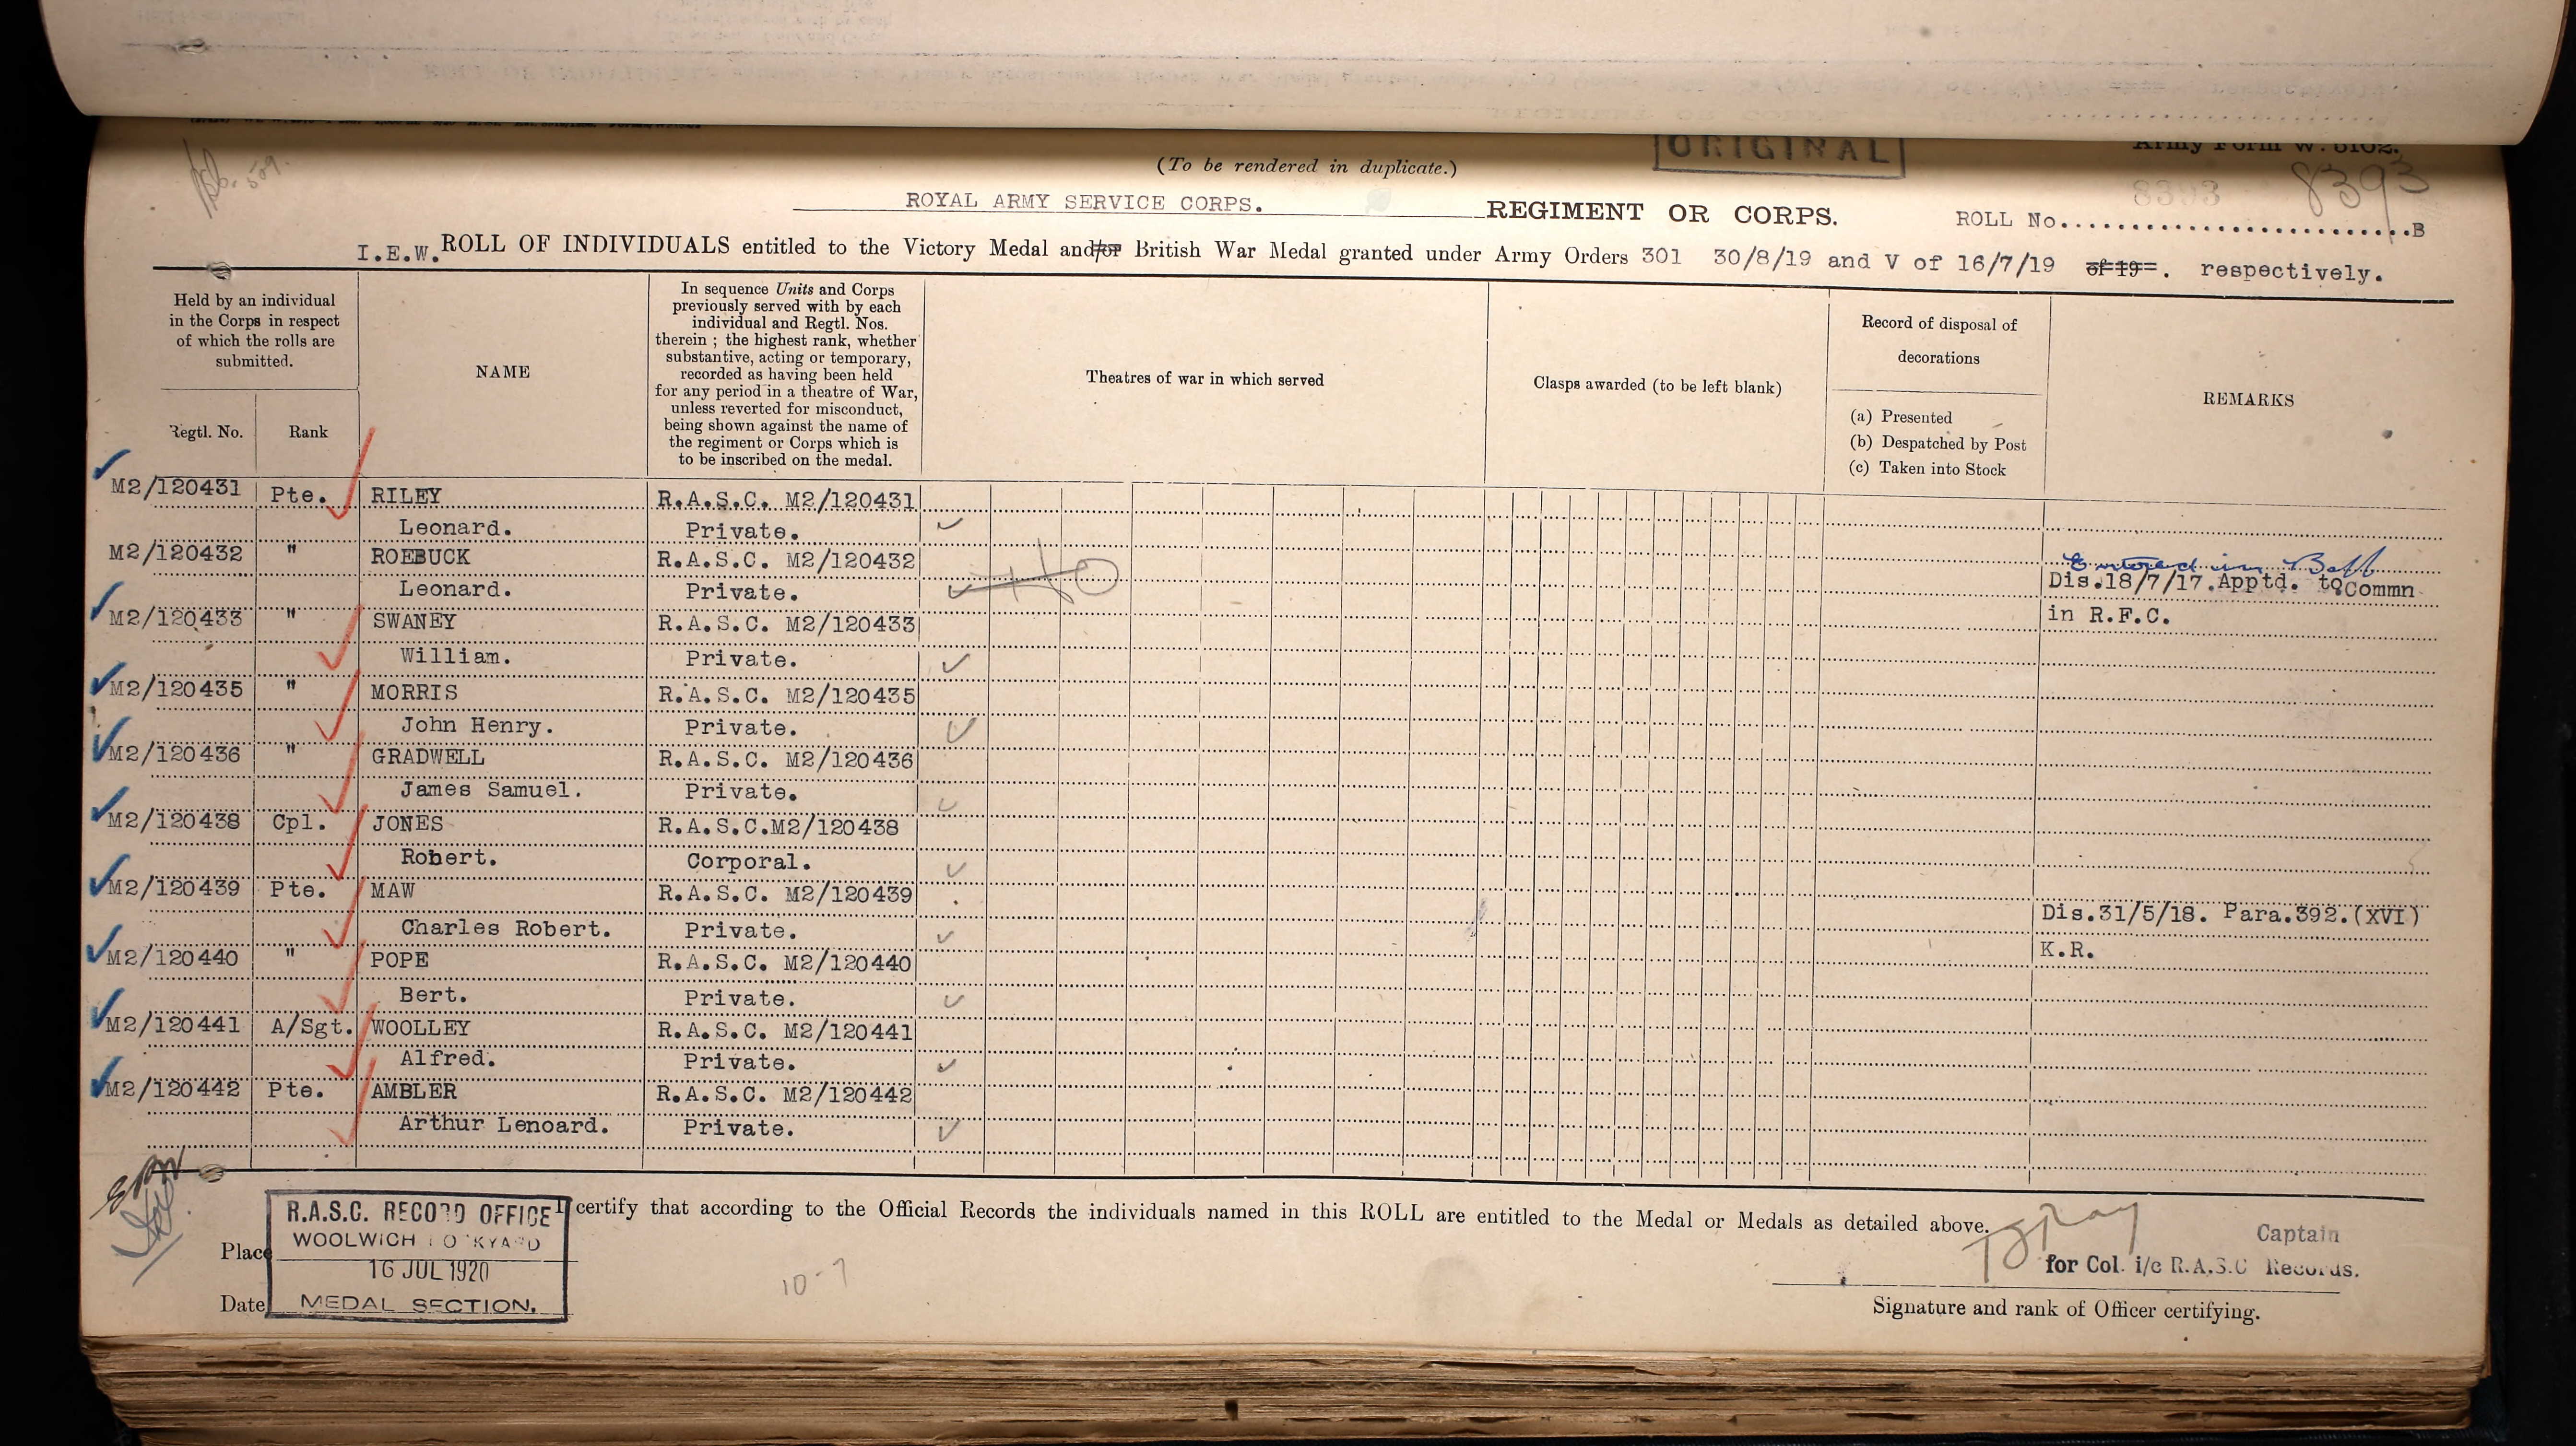 (To be rendered in duplicate.)
ORIGINAL
Army Form W. 5102.
8393
8393
ROYAL ARMY SERVICE CORPS. REGIMENT OR CORPS. ROLL No. B
I.E.W. ROLL OF INDIVIDUALS entitled to the Victory Medal and/or British War Medal granted under Army Orders 301 30/8/19 and V of 16/7/19 of 19 . respectively.
Held by an individual
in the Corps in respect
of which the rolls are
submitted.
Regtl. No.
Rank
NAME
In sequence Units and Corps
previously served with by each
individual and Regtl. Nos.
therein ; the highest rank, whether
substantive, acting or temporary,
recorded as having been held
for any period in a theatre of War,
unless reverted for misconduct,
being shown against the name of
the regiment or Corps which is
to be inscribed on the medal.
Theatres of war in which served
Clasps awarded (to be left blank)
Record of disposal of
decorations
(a) Presented
(b) Despatched by Post
(c) Taken into Stock
REMARKS
M2/120431 Pte. RILEY R.A.S.C. M2/120431
Leonard. Private.
M2/120432 " ROEBUCK R.A.S.C. M2/120432 Entered in
Leonard. Private. Dis.18/7/17.Apptd. to Commn
M2/120433 " SWANEY R.A.S.C. M2/120433 in R.F.C.
William. Private.
M2/120435 " MORRIS R.A.S.C. M2/120435
John Henry. Private.
M2/120436 " GRADWELL R.A.S.C. M2/120436
James Samuel. Private.
M2/120438 Cpl. JONES R.A.S.C.M2/120438
Robert. Corporal.
M2/120439 Pte. MAW R.A.S.C. M2/120439 Dis.31/5/18. Para.392.(XVI)
Charles Robert. Private. K.R.
M2/120440 " POPE R.A.S.C. M2/120440
Bert. Private.
M2/120441 A/Sgt. WOOLLEY R.A.S.C. M2/120441
Alfred. Private.
M2/120442 Pte. AMBLER R.A.S.C. M2/120442
Arthur Lenoard. Private.
I certify that according to the Official Records the individuals named in this ROLL are entitled to the Medal or Medals as detailed above.
R.A.S.C. RECORD OFFICE
WOOLWICH DOCKYARD
16 JUL 1920
MEDAL SECTION.
Place
Date
10-7
Captain
for Col. i/c R.A.S.C Records.
Signature and rank of Officer certifying.